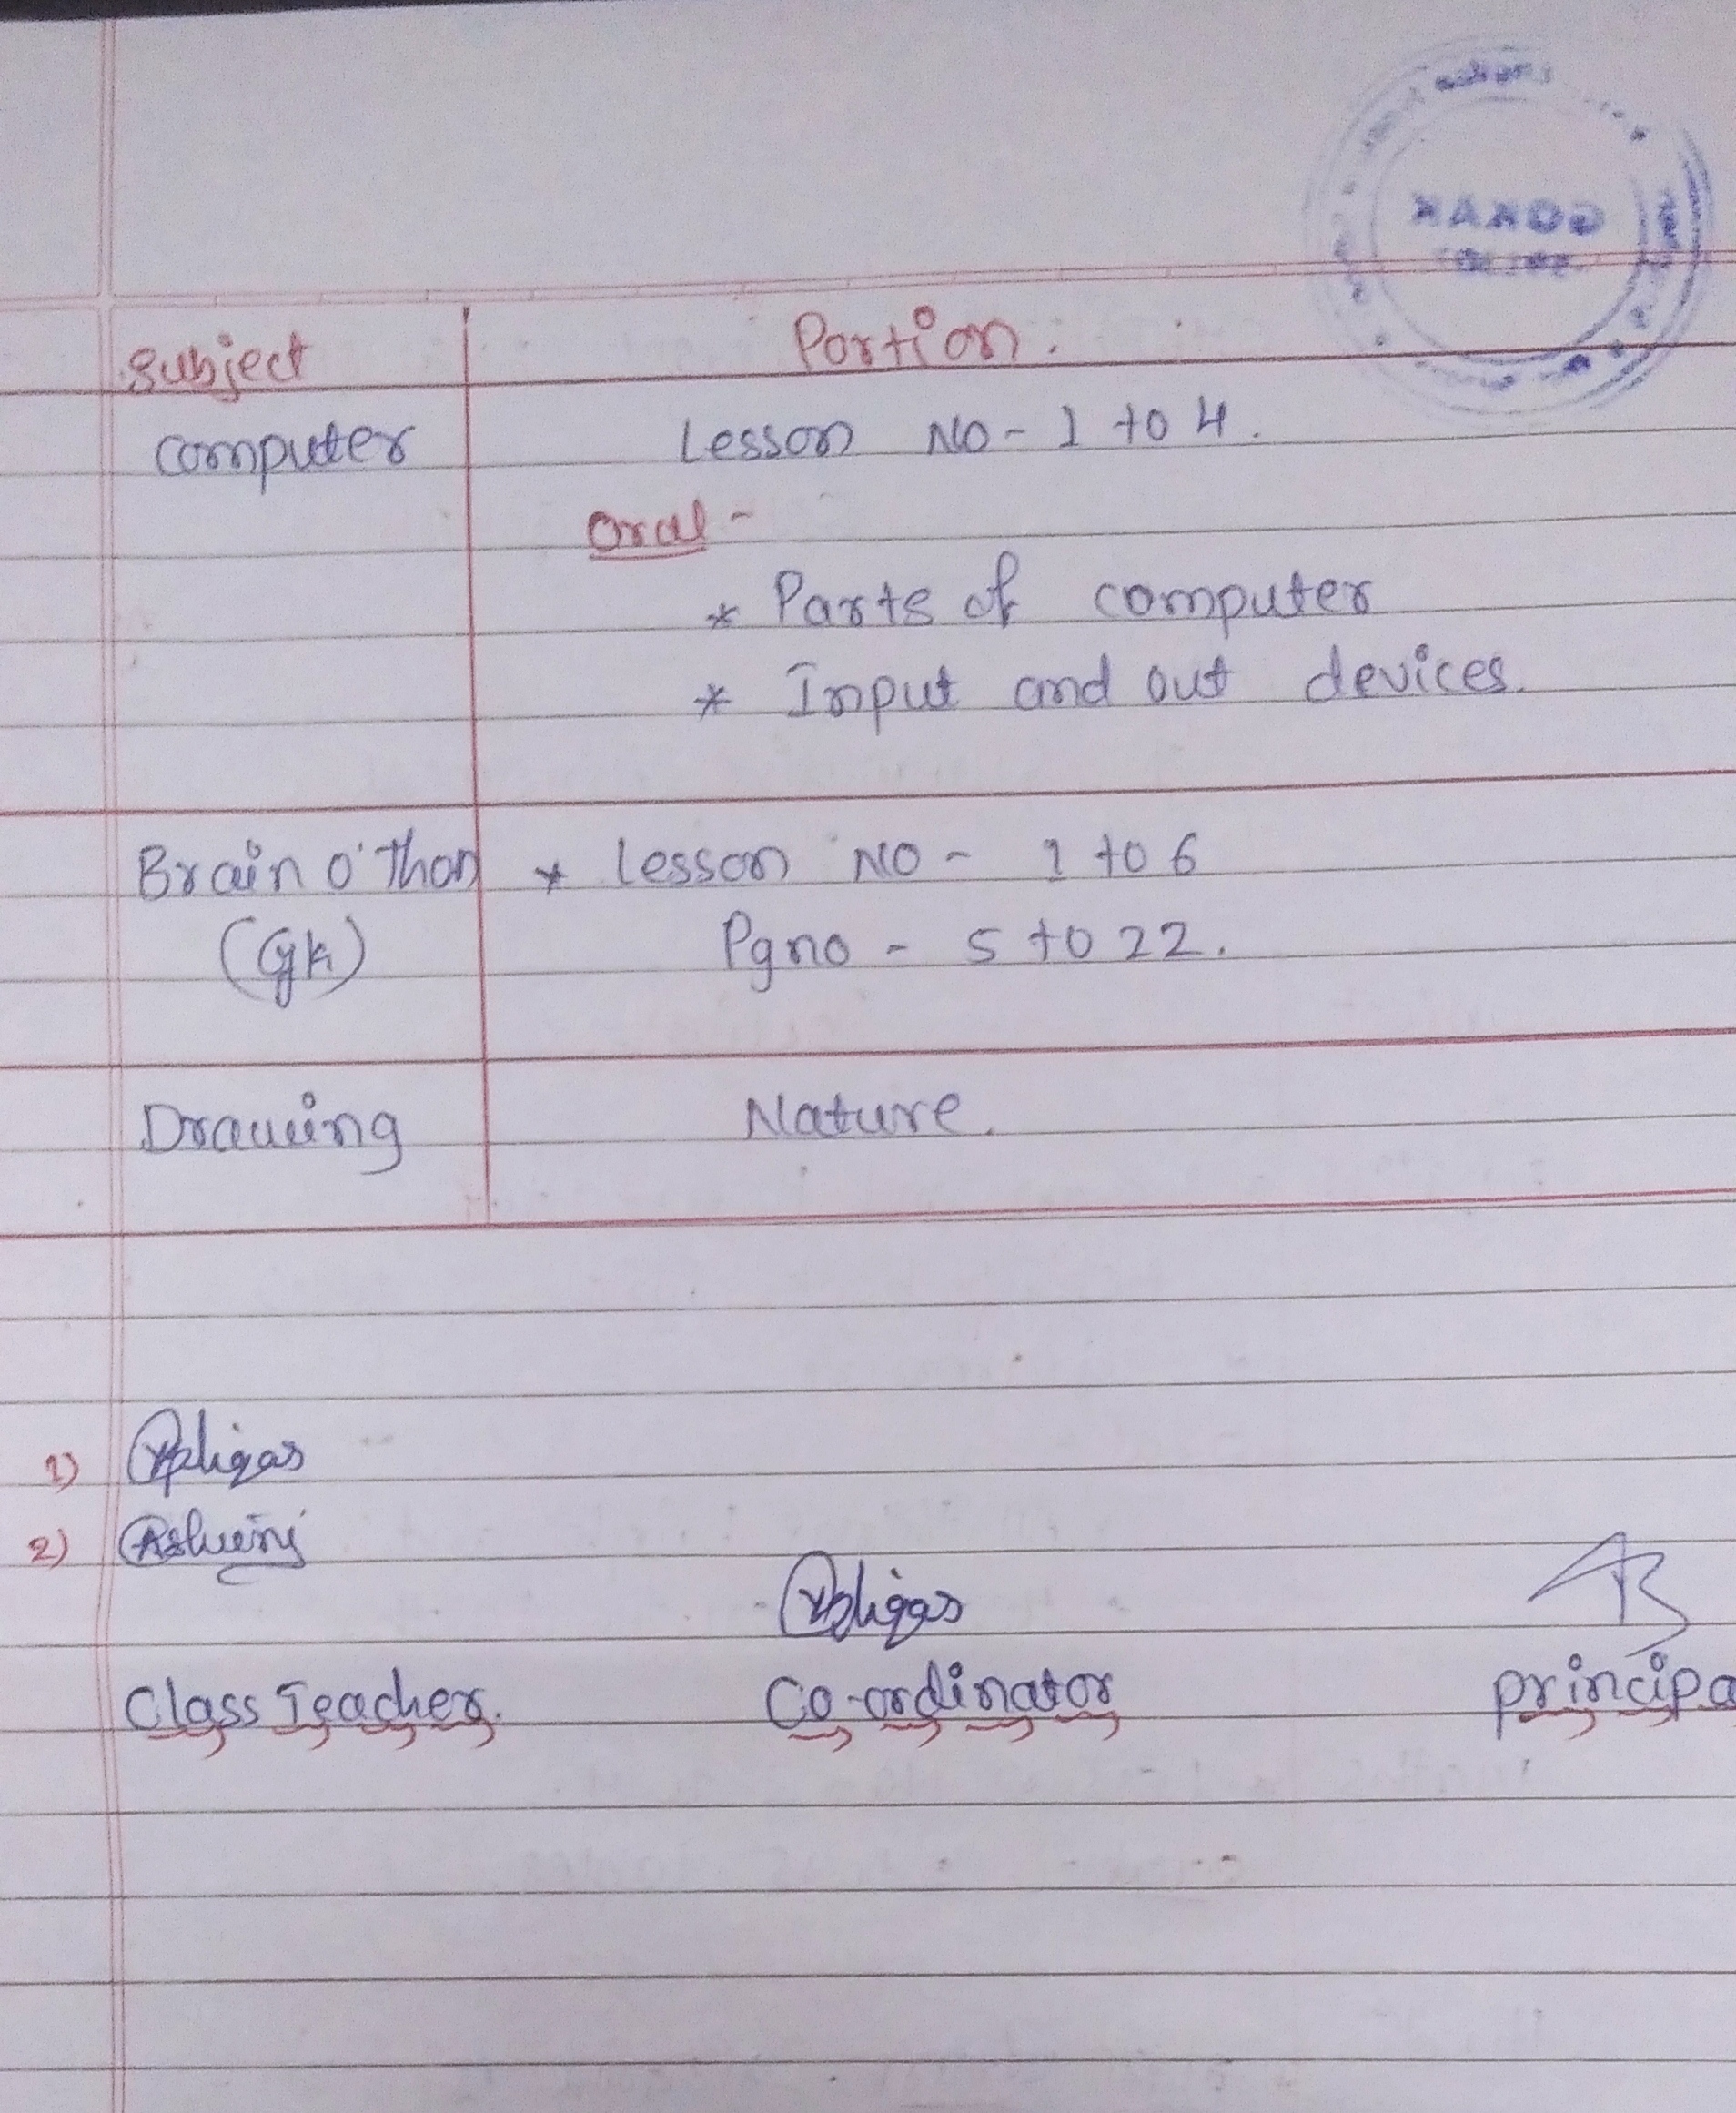 Subject Portion.
Computer Lesson No - 1 to 4.
Oral -
* Parts of computer
* Input and out devices.
Brain o'Thon * Lesson No - 1 to 6
(Gk) Pgno - 5 to 22.
Drawing Nature.
1)
2) Ashwini
Class Teacher. Co-ordinator principa
GOKAK